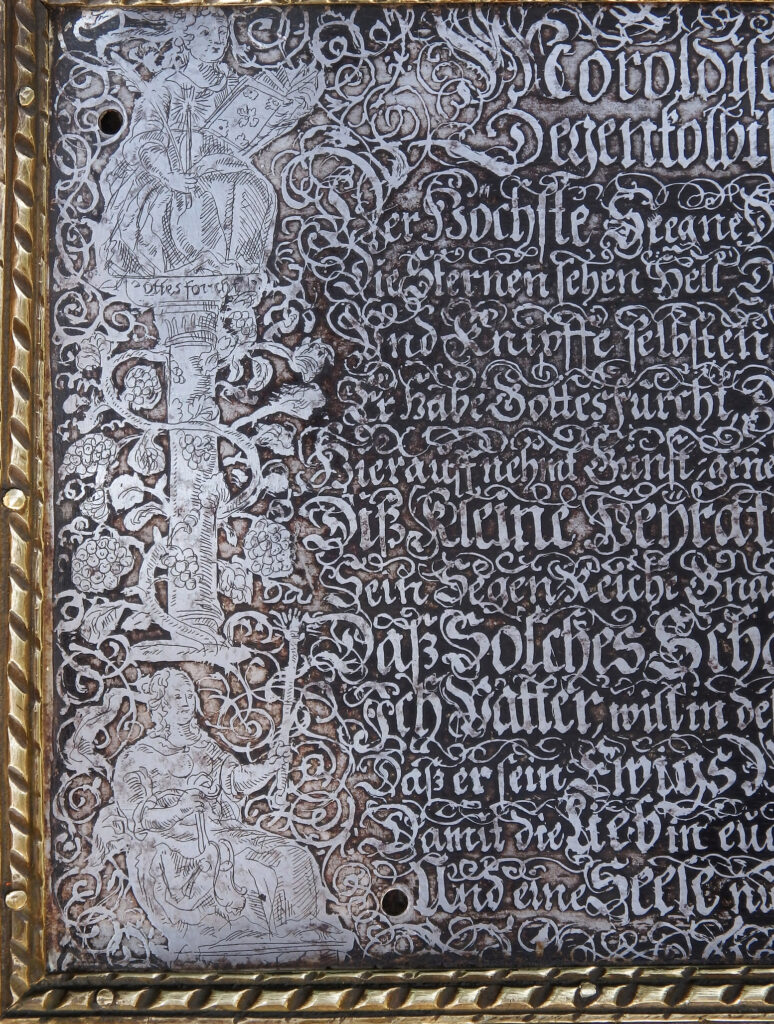 Noroldisc
Degenkolbi
Der Höchste Seegne
Die Sternen sehen Hell
Und Knipffte selbsten
Er Habe Gottesfurcht
ottesforcht
Hierauff nehmt Gunst gene
Diß Kleine Heÿrat
Sein Segen Reiche Gna
Daß Solches Scho
Ich Vatter, will in de
Daß er sein Ewigs
Damit die Lieb in eüc
Und eine Seele nu